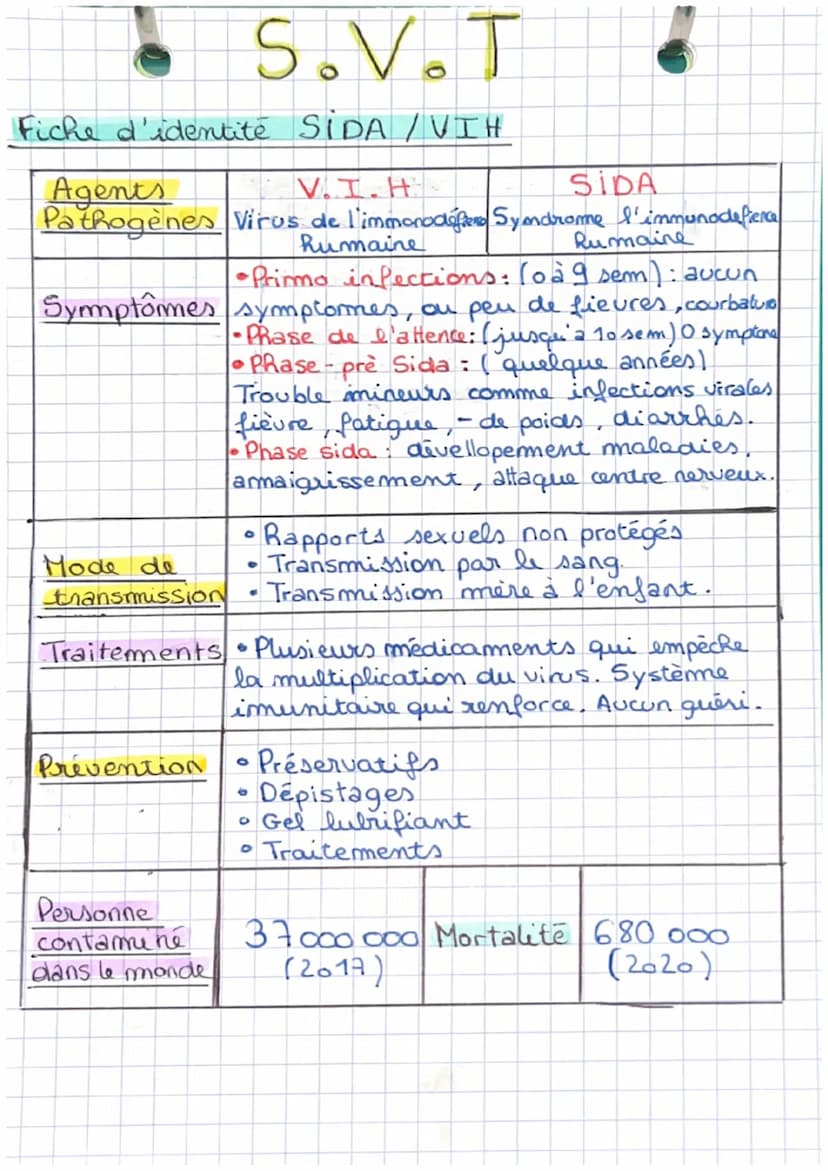 S.V.T
Fiche d'identité SIDA / VIH
Agents
Pathogènes
V.I.H
Virus de l'immonodéfience
Humaine
SIDA
Syndrome l'immunodefience
Humaine
Symptômmes
• Primo infections: (0 à 9 sem): aucun
symptomes, ou peu de fievures, courbature
• Phase de l'attence: (jusqu'à 10 sem) 0 symptome
• Phase - prè Sida : ( quelque années)
Trouble mineurs comme infections virales
fièvre, fatigue, - de poids, diarrhés.
• Phase sida : dévellopement maladies,
amaigrissement, attaque centre nerveux.
Mode de
transmission
• Rapports sexuels non protégés
• Transmission par le sang.
• Transmission mère à l'enfant.
Traitements
• Plusieurs médicaments qui empêche
la multiplication du virus. Système
imunitaire qui renforce. Aucun guéri.
Prévention
• Préservatifs
• Dépistages
• Gel lubrifiant
• Traitements
Personne
contaminé
dans le monde
37 000 000
(2017)
Mortalité
680 000
(2020)